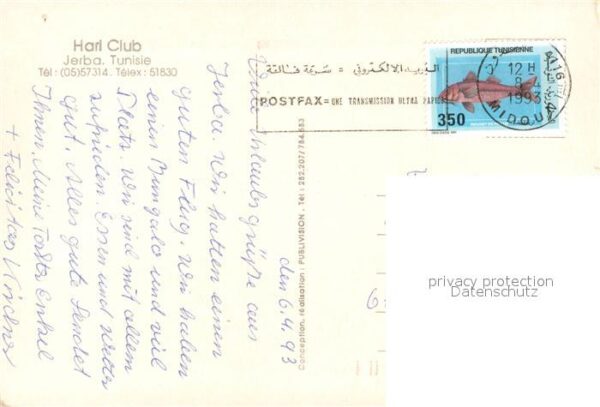 Hari Club
Jerba. Tunisie
Tél : (05)57314. Télex : 51830
البريد الالكتروني = سرعة فائقة
POSTFAX = UNE TRANSMISSION ULTRA RAPIDE
REPUBLIQUE TUNISIENNE
350
12 H
1993
MIDOUN
Conception, réalisation : PUBLIVISION. Tél : 252.207/784.553
den 6.4.93
Urlaubsgrüße aus
Jerba. Wir hatten einen
guten Flug. Wir haben
einen Bungalo und viel
Platz. Wir sind mit allem
zufrieden. Essen und Wetter
gut. Alles gute sendet
Ihnen, Mine Tante, Enkel
+ Felicitas
privacy protection
Datenschutz